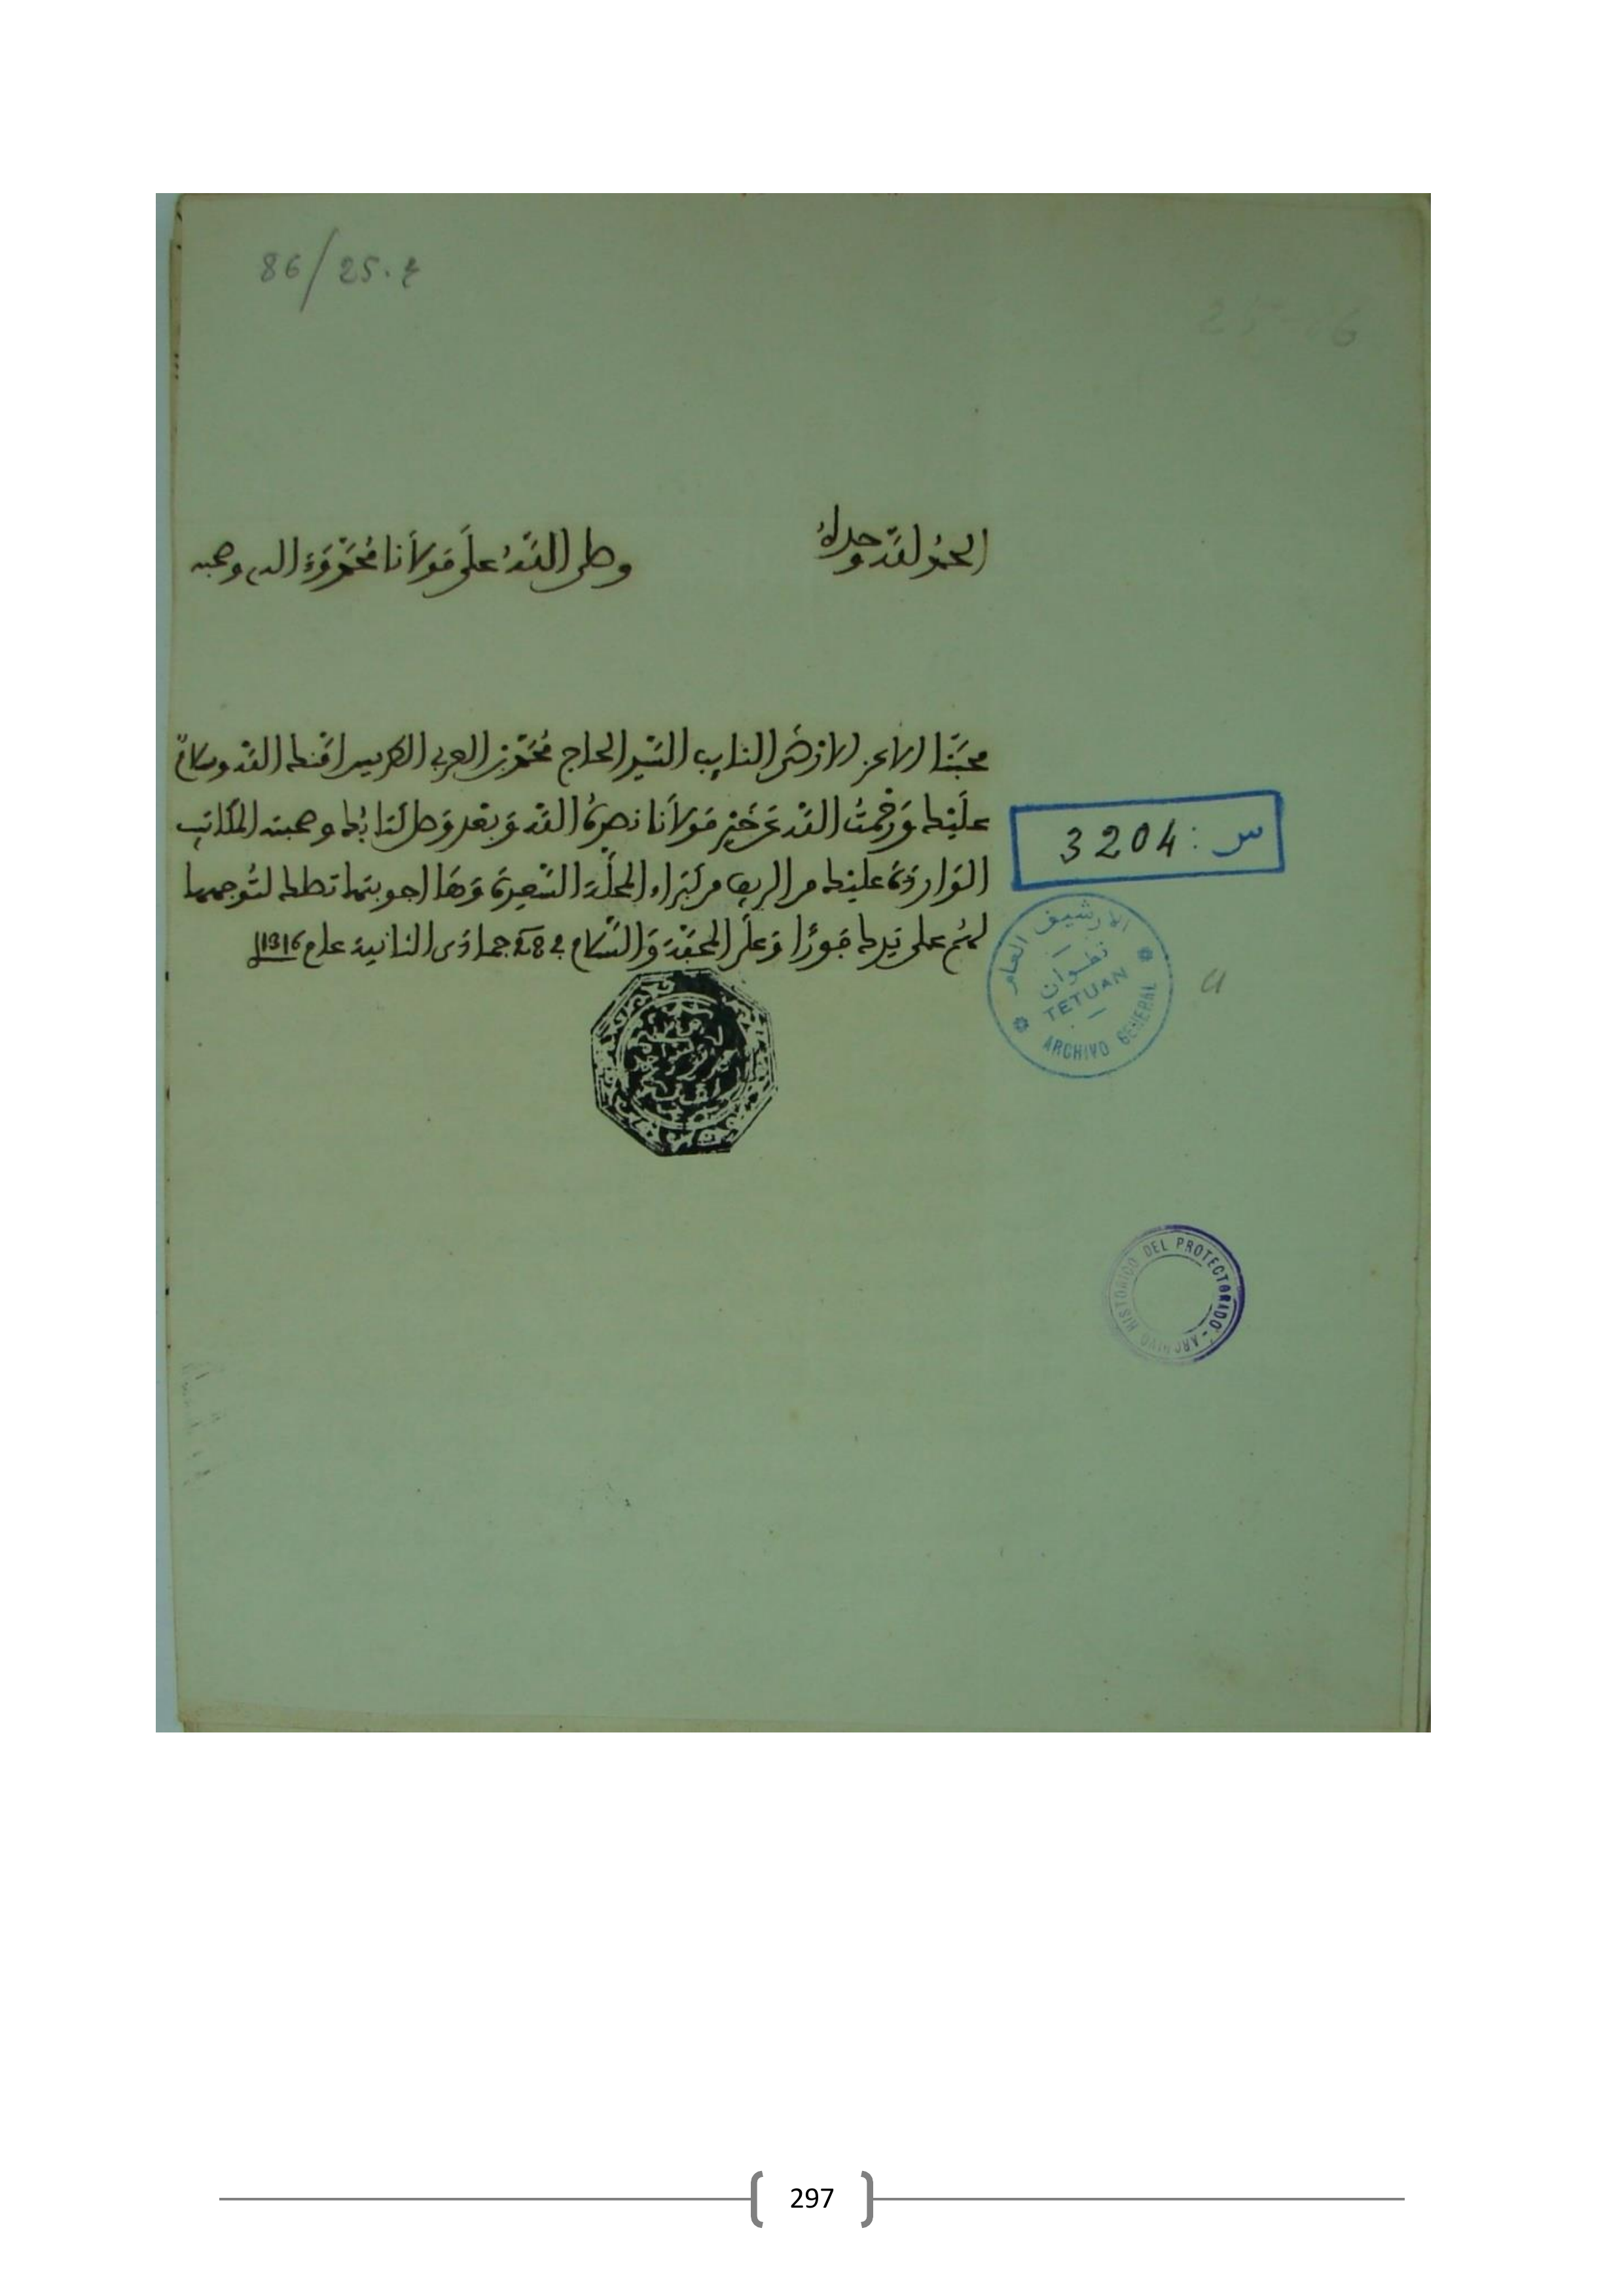 86/25.
الحمد لله وحده
وصلى الله على مولانا محمد وءاله وصحبه
محبنا الاعز الارضى النايب السيد الحاج محمد بن العربي الطريس امنك الله وسلام
عليك ورحمت الله عن خير مولانا نصره الله وبعد وصل كتابك وصحبته المكاتيب
الواردة عليك من الريف من كبراء المحلة السعيدة وها اجوبتها تصلك لتوجهها
لهم على يدك فورا وعلى المحبة والسلام في 8 جمادى الثانية عام 1316
س: 3204
الارشيف العام
تطوان
TETUAN
ARCHIVO GENERAL
ARCHIVO HISTORICO DEL PROTECTORADO
297